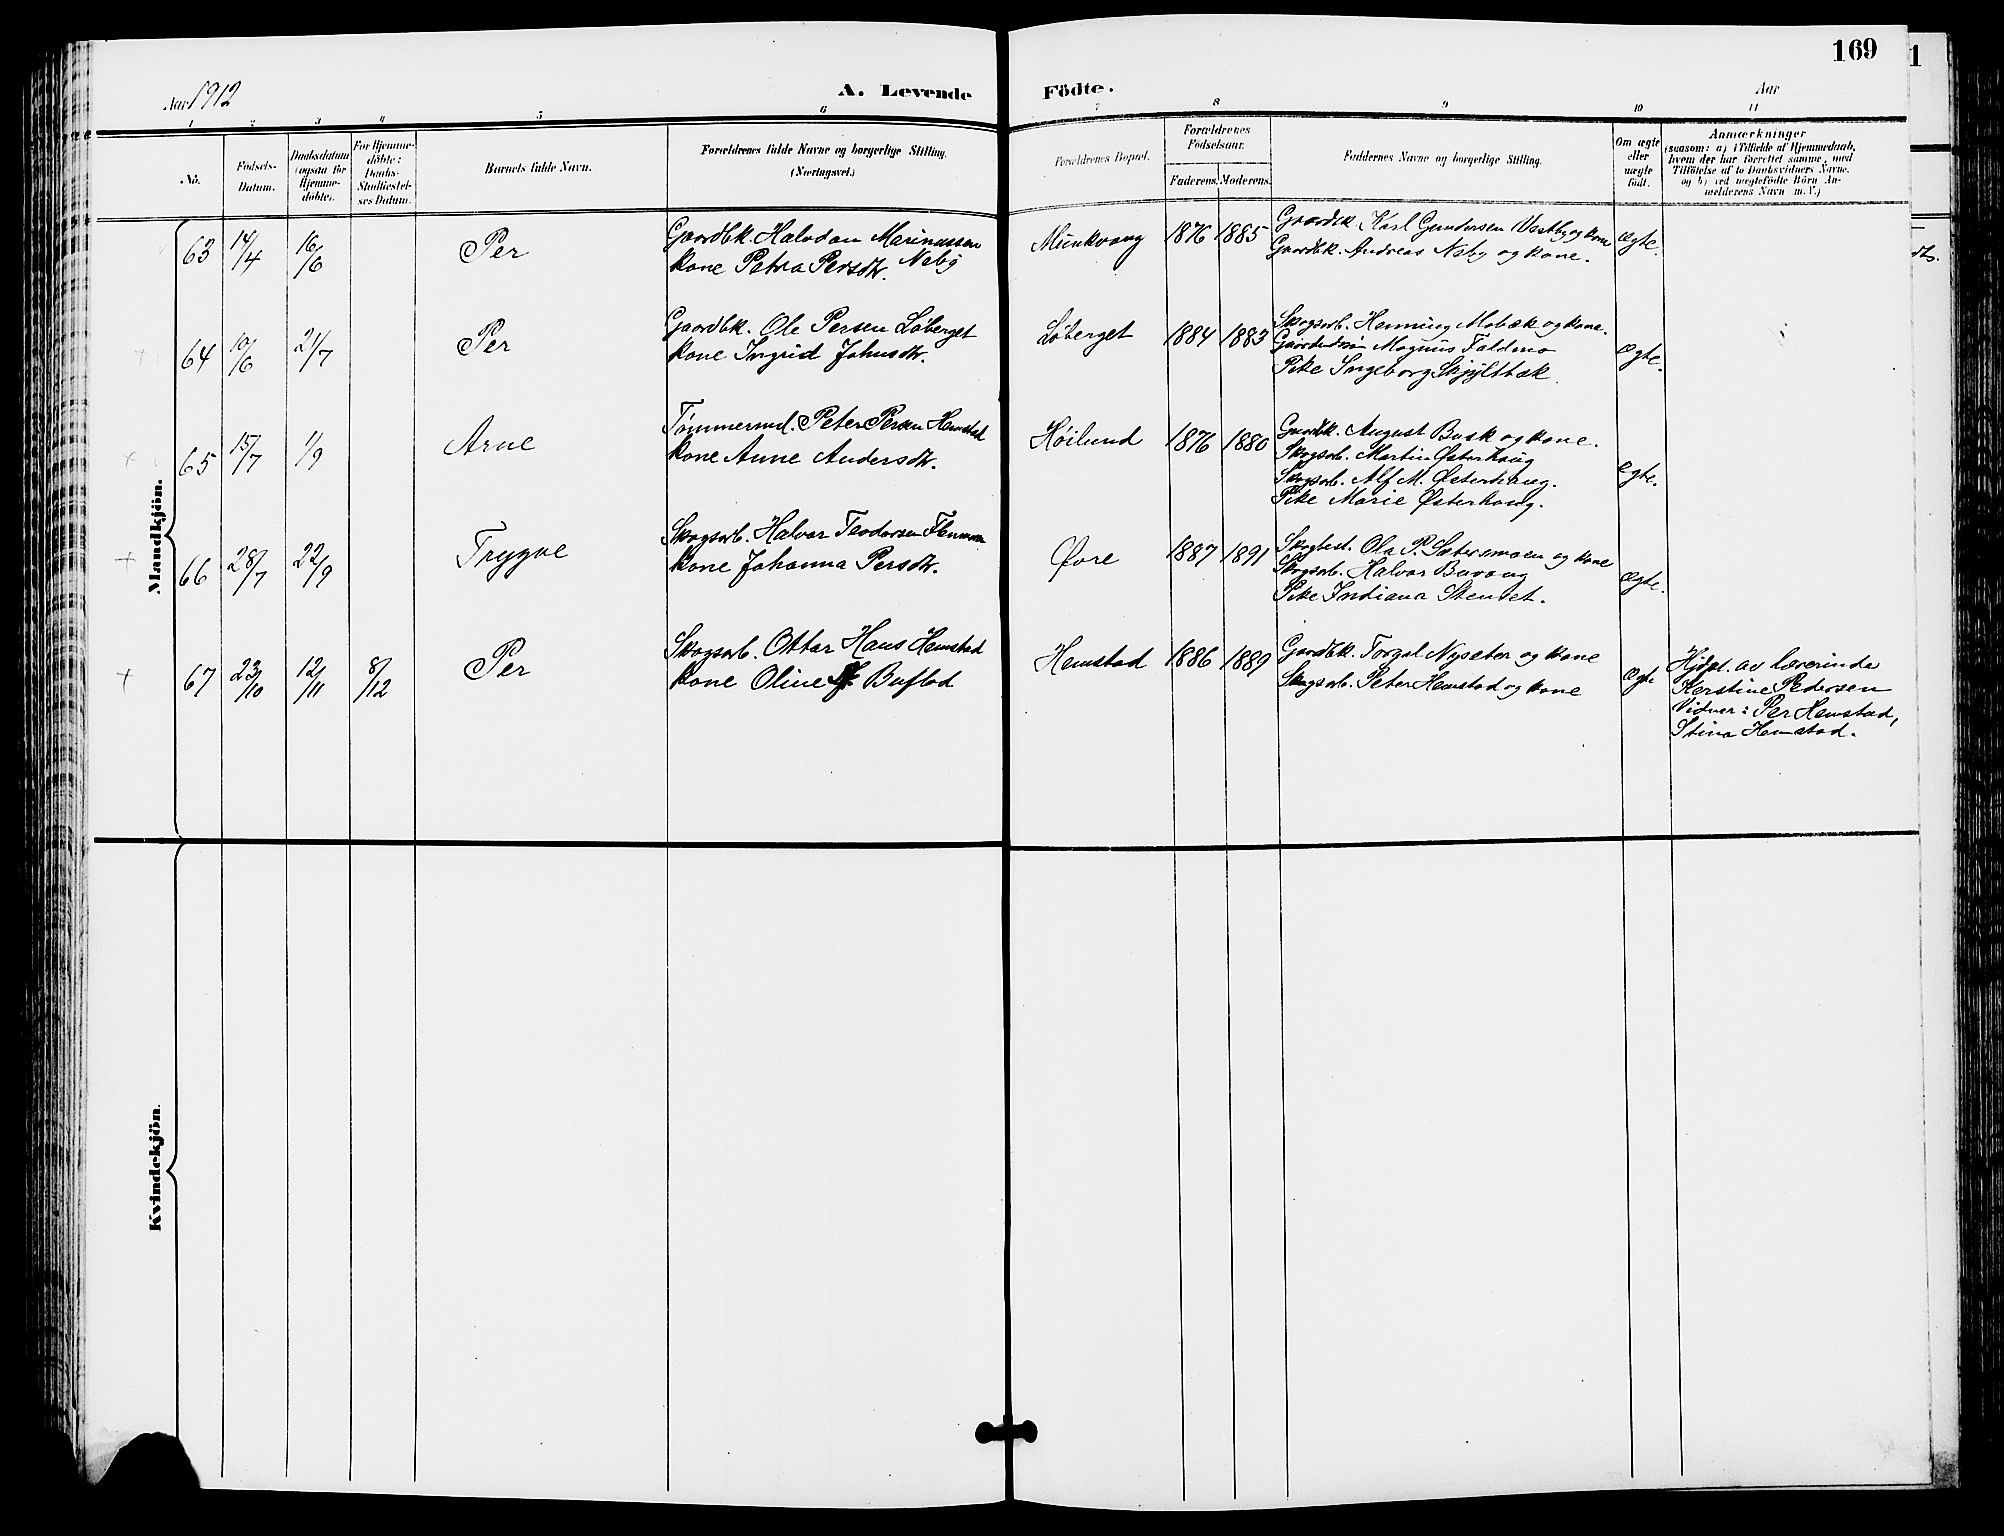 169
1
Aar 1912
A. Levende Födte.
Aar
1 2 3 4 5 6 7 8 9 10 11
No.
Födsels-
Datum.
Daabsdatum
(ogsaa for
Hjemme-
döbte).
For Hjemme-
döbte:
Daabs-
Stadfæstel-
ses Datum.
Barnets fulde Navn.
Forældrenes fulde Navne og borgerlige Stilling.
(Næringsvei.)
Forældrenes Bopæl.
Forældrenes
Födselsaar.
Faderens. Moderens.
Faddernes Navne og borgerlige Stilling.
Om ægte
eller
uægte
født.
Anmærkninger
(saasom: a) i Tilfælde af Hjemmedaab,
hvem der har forrettet samme, med
Tilföielse af to Daabsvidners Navne.
og b) ved uægtefödte Börn An-
melderens Navn m. V.)
Mandkjön.
63 14/4 16/6 Per
Gaardbk. Halvdan Marinussen
Kone Petra Persdtr. Neby
Munkvang 1876 1885
Gaardbk. Karl Gundersen Vestby og kone
Gaardbk. Andreas Neby og kone.
Ægte.
64 10/6 21/7 Per
Gaardbk. Ole Persen Løberget
Kone Ingrid Johnsdtr.
Løberget 1884 1883
Skogsarb. Henning Mobæk og kone.
Magnus Faldmo
Pike Ingeborg Skjyltbæk
Ægte.
65 15/7 1/9 Arne
Tømmermd. Peter Persen Hemstad
Kone Anne Andersdtr.
Høilund 1876 1880
Gaardbk. August Bask og kone.
Skogsarb. Martin Østerhaug
Skogsarb. Alf M. Østerhaug.
Pike Marie Østerhaug.
Ægte.
66 28/7 22/9 Trygve
Skogsarb. Halvor Teodorsen Flermoen
Kone Johanna Persdtr.
Øvre 1887 1891
Skogbest. Ola P. Sætersmoen og kone
Skogsarb. Halvor Buvang
Pike Indiana Stenset.
Ægte.
67 23/10 12/11 8/12 Per
Skogsarb. Ottar Hans Hemstad
Kone Oline Buflod
Hemstad 1886 1889
Gaardbk. Torgal Nysæter og kone
Skogsarb. Peter Hemstad og kone
Ægte
Hjdpt. av lærerinde
Kerstine Pedersen
Vidner: Per Hemstad,
Stina Hemstad.
Kvindekjön.